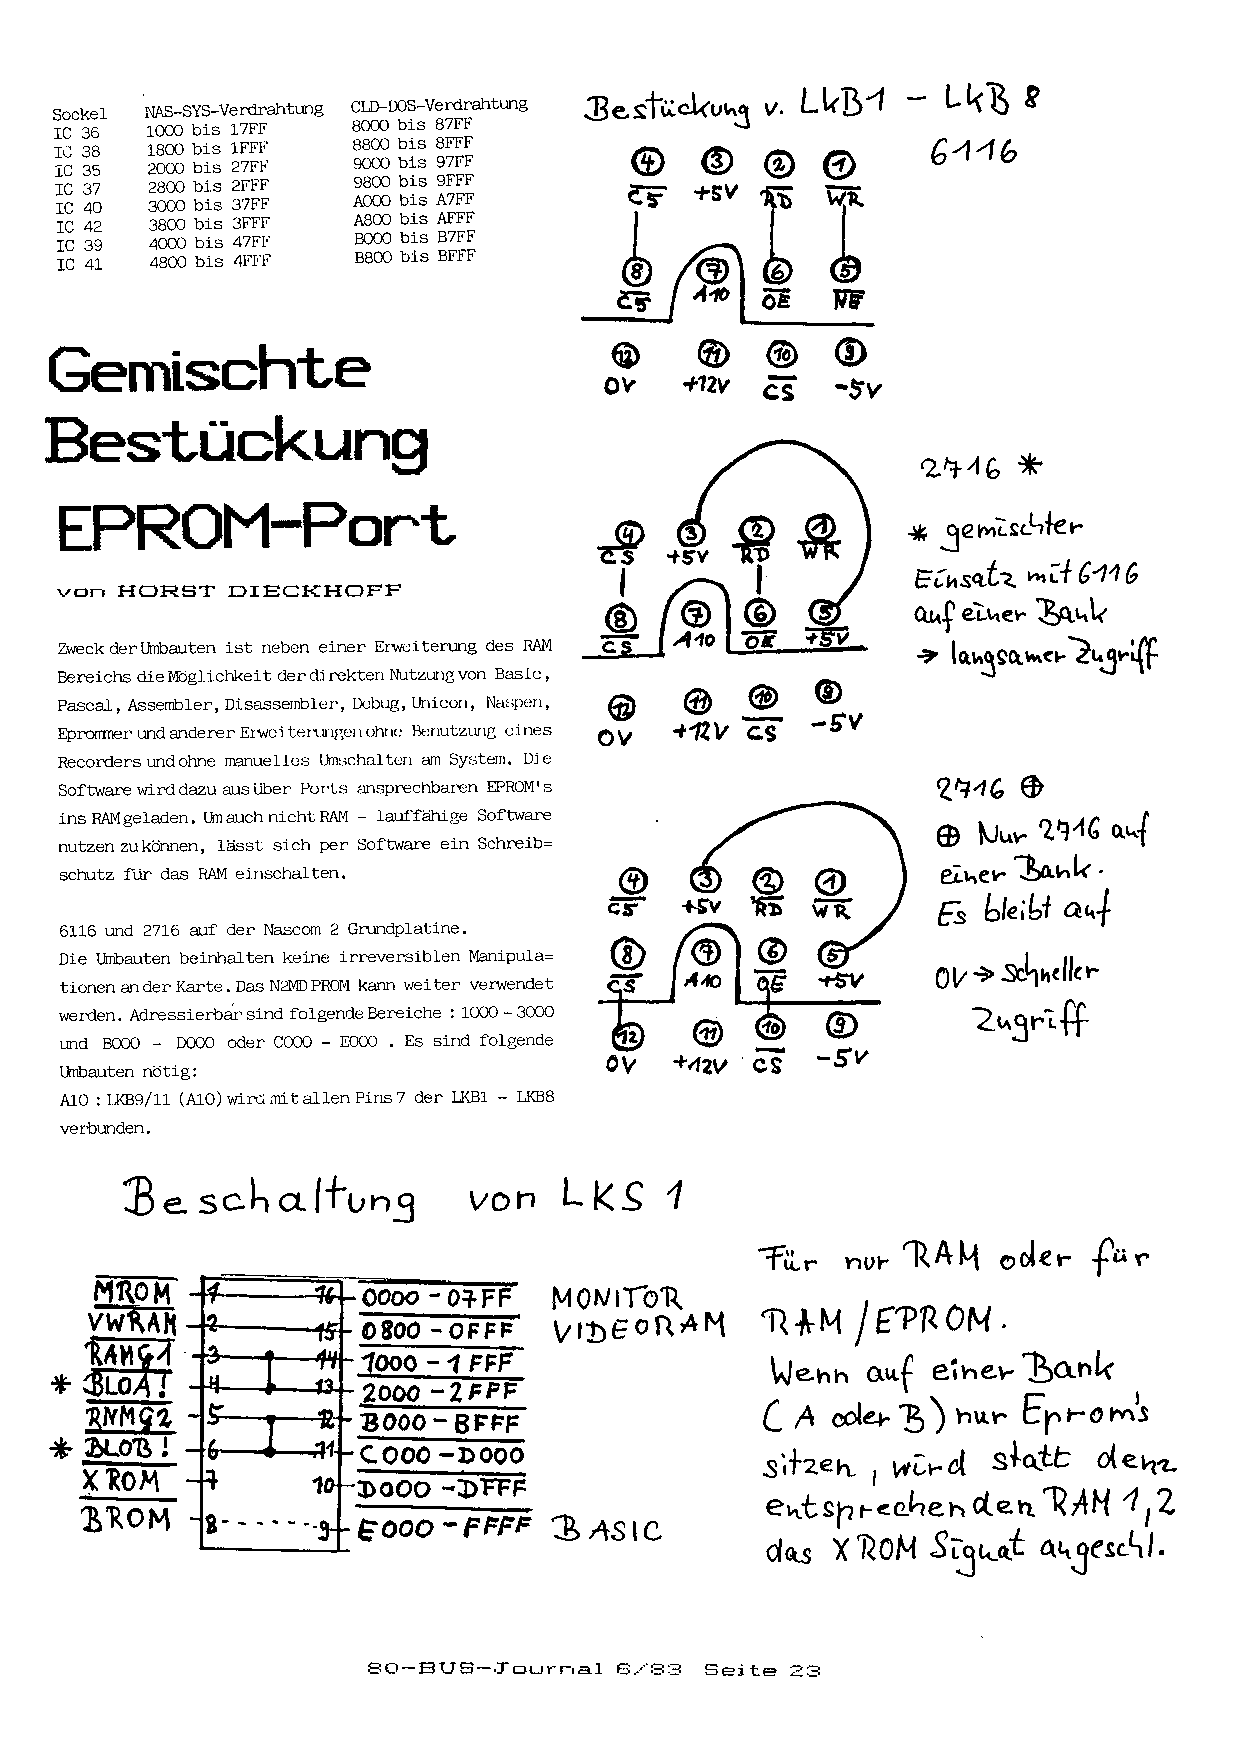 Sockel NAS-SYS-Verdrahtung CLD-DOS-Verdrahtung
IC 36 1000 bis 17FF 8000 bis 87FF
IC 38 1800 bis 1FFF 8800 bis 8FFF
IC 35 2000 bis 27FF 9000 bis 97FF
IC 37 2800 bis 2FFF 9800 bis 9FFF
IC 40 3000 bis 37FF A000 bis A7FF
IC 42 3800 bis 3FFF A800 bis AFFF
IC 39 4000 bis 47FF B000 bis B7FF
IC 41 4800 bis 4FFF B800 bis BFFF
Gemischte
Bestückung
EPROM-Port
von HORST DIECKHOFF
Zweck der Umbauten ist neben einer Erweiterung des RAM
Bereichs die Möglichkeit der direkten Nutzung von Basic,
Pascal, Assembler, Disassembler, Debug, Unicon, Naspen,
Eprommer und anderer Erweiterungen ohne Benutzung eines
Recorders und ohne manuelles Umschalten am System. Die
Software wird dazu aus über Ports ansprechbaren EPROM's
ins RAM geladen. Um auch nicht RAM - lauffähige Software
nutzen zu können, lässt sich per Software ein Schreib=
schutz für das RAM einschalten.
6116 und 2716 auf der Nascom 2 Grundplatine.
Die Umbauten beinhalten keine irreversiblen Manipula=
tionen an der Karte. Das N2MD PROM kann weiter verwendet
werden. Adressierbar sind folgende Bereiche : 1000 - 3000
und B000 - D000 oder C000 - E000 . Es sind folgende
Umbauten nötig:
A10 : LKB9/11 (A10) wird mit allen Pins 7 der LKB1 - LKB8
verbunden.
Bestückung v. LKB1 - LKB 8
6116
4 3 2 1
CS +5V RD WR
8 7 6 5
CS A10 OE WE
12 11 10 9
0V +12V CS -5V
2716 *
* gemischter
Einsatz mit 6116
auf einer Bank
→ langsamer Zugriff
4 3 2 1
CS +5V RD WR
8 7 6 5
CS A10 OE +5V
12 11 10 9
0V +12V CS -5V
2716 ⊕
⊕ Nur 2716 auf
einer Bank.
Es bleibt auf
0V → schneller
Zugriff
4 3 2 1
CS +5V RD WR
8 7 6 5
CS A10 OE +5V
12 11 10 9
0V +12V CS -5V
Beschaltung von LKS 1
MROM 1 16 0000 - 07FF MONITOR
VWRAM 2 15 0800 - 0FFF VIDEORAM
RAMG1 3 14 1000 - 1FFF
* BLOA! 4 13 2000 - 2FFF
RAMG2 5 12 B000 - BFFF
* BLOB! 6 11 C000 - D000
XROM 7 10 D000 - DFFF
BROM 8 9 E000 - FFFF BASIC
Für nur RAM oder für
RAM/EPROM.
Wenn auf einer Bank
(A oder B) nur Eprom's
sitzen, wird statt dem
entsprechenden RAM 1,2
das XROM Signal angeschl.
80-BUS-Journal 6/83 Seite 23